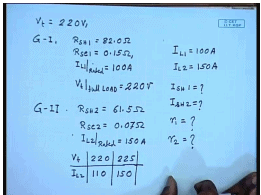 Vt = 220V,
G-I, RSH1 = 82.0Ω
RSE1 = 0.15Ω,
IL1|Rated = 100A
Vt|FULL LOAD = 220V
IL1 = 100A
IL2 = 150A
ISH1 = ?
ISH2 = ?
r1 = ?
r2 = ?
G-II. RSH2 = 61.5Ω
RSE2 = 0.075Ω
IL2|Rated = 150A
Vt 220 225
IL2 110 150